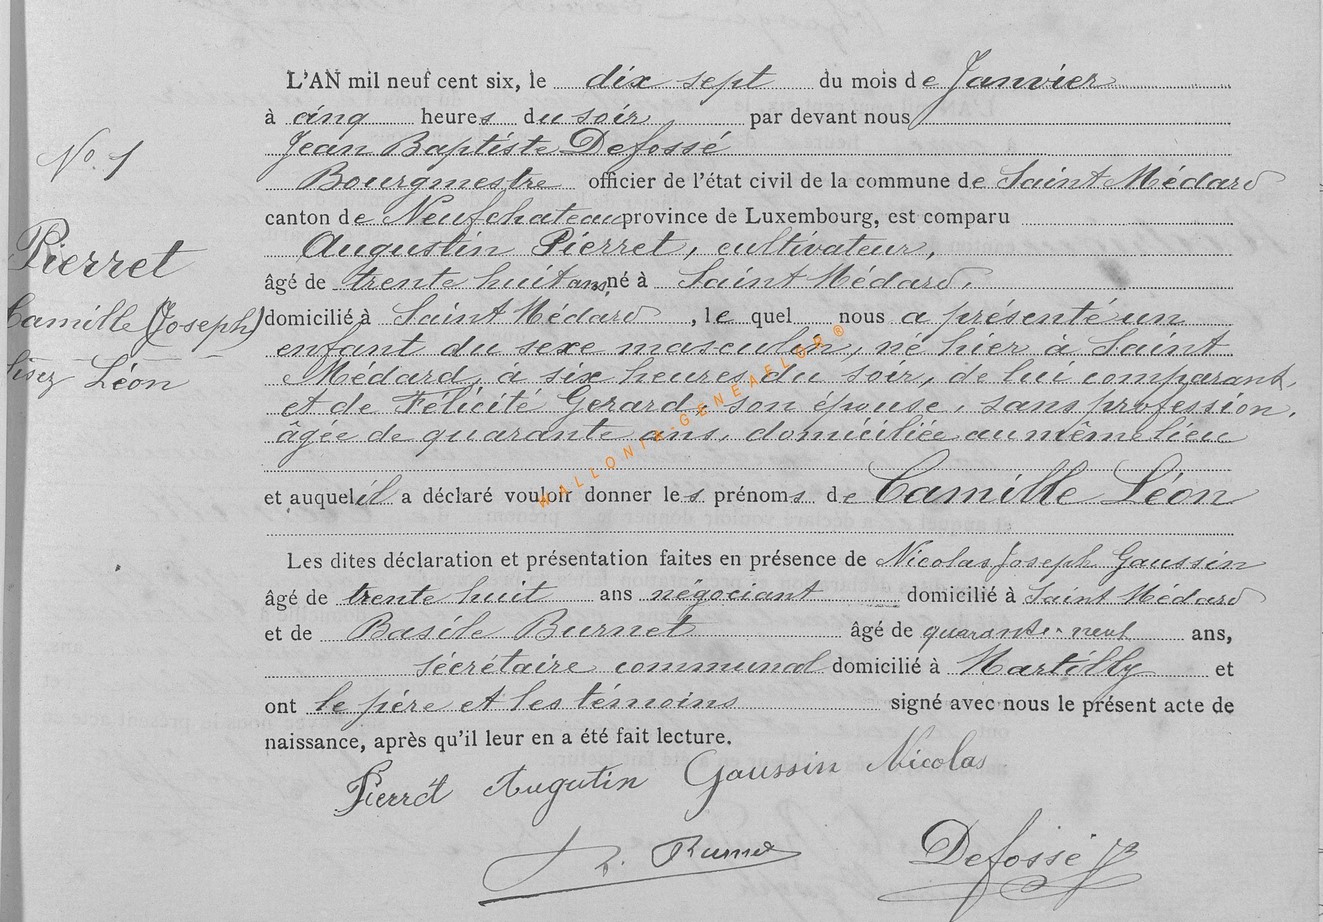 L'AN mil neuf cent six, le dix sept du mois de Janvier
à cinq heures du soir, par devant nous
Jean Baptiste Defossé
Bourgmestre officier de l'état civil de la commune de Saint Médard
canton de Neufchateau province de Luxembourg, est comparu
Augustin Pierret, cultivateur,
âgé de trente huit ans, né à Saint Médard,
domicilié à Saint Médard, le quel nous a présenté un
enfant du sexe masculin, né hier à Saint
Médard, à six heures du soir, de lui comparant,
et de Félicité Gerard, son épouse, sans profession,
âgée de quarante ans, domiciliée au même lieu
et auquel il a déclaré vouloir donner les prénoms de Camille Léon
Les dites déclaration et présentation faites en présence de Nicolas Joseph Gaussin
âgé de trente huit ans négociant domicilié à Saint Médard
et de Basile Burnet âgé de quarante-neuf ans,
sécrétaire communal domicilié à Martilly et
ont le père et les témoins signé avec nous le présent acte de
naissance, après qu'il leur en a été fait lecture.
Pierret Augutin Gaussin Nicolas
Burnet Defossé JB
No. 1
Pierret
Camille (Joseph)
lisez Léon
WALLONIA-GENEAFLOR®